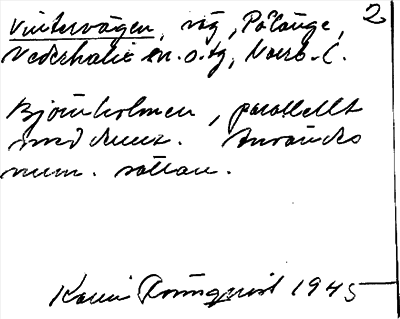 Vintervägen, väg, Pålänge, 2
Nederkalix sn. o. tg, Norrb. l.
Björnholmen, parallellt
med denna. Användes
num. sällan.
Karin Rönnqvist 1945